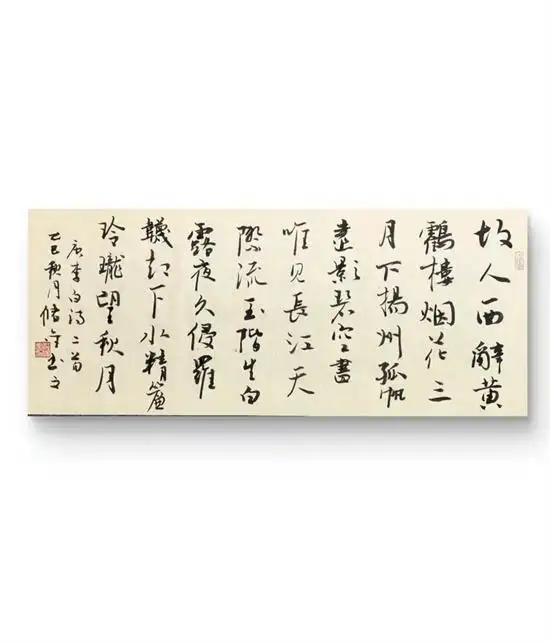 故人西辭黃
鶴樓烟花三
月下揚州孤帆
遠影碧空盡
唯見長江天
際流玉階生白
露夜久侵羅
襪却下水精簾
玲瓏望秋月
唐李白詩二首
乙巳秋月